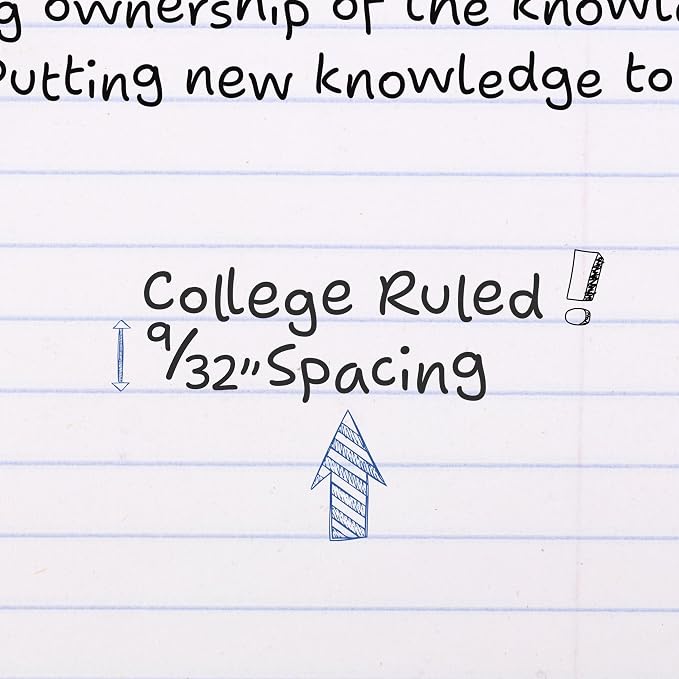 ownership of the
Putting new knowledge to
College Ruled!
9/32" Spacing